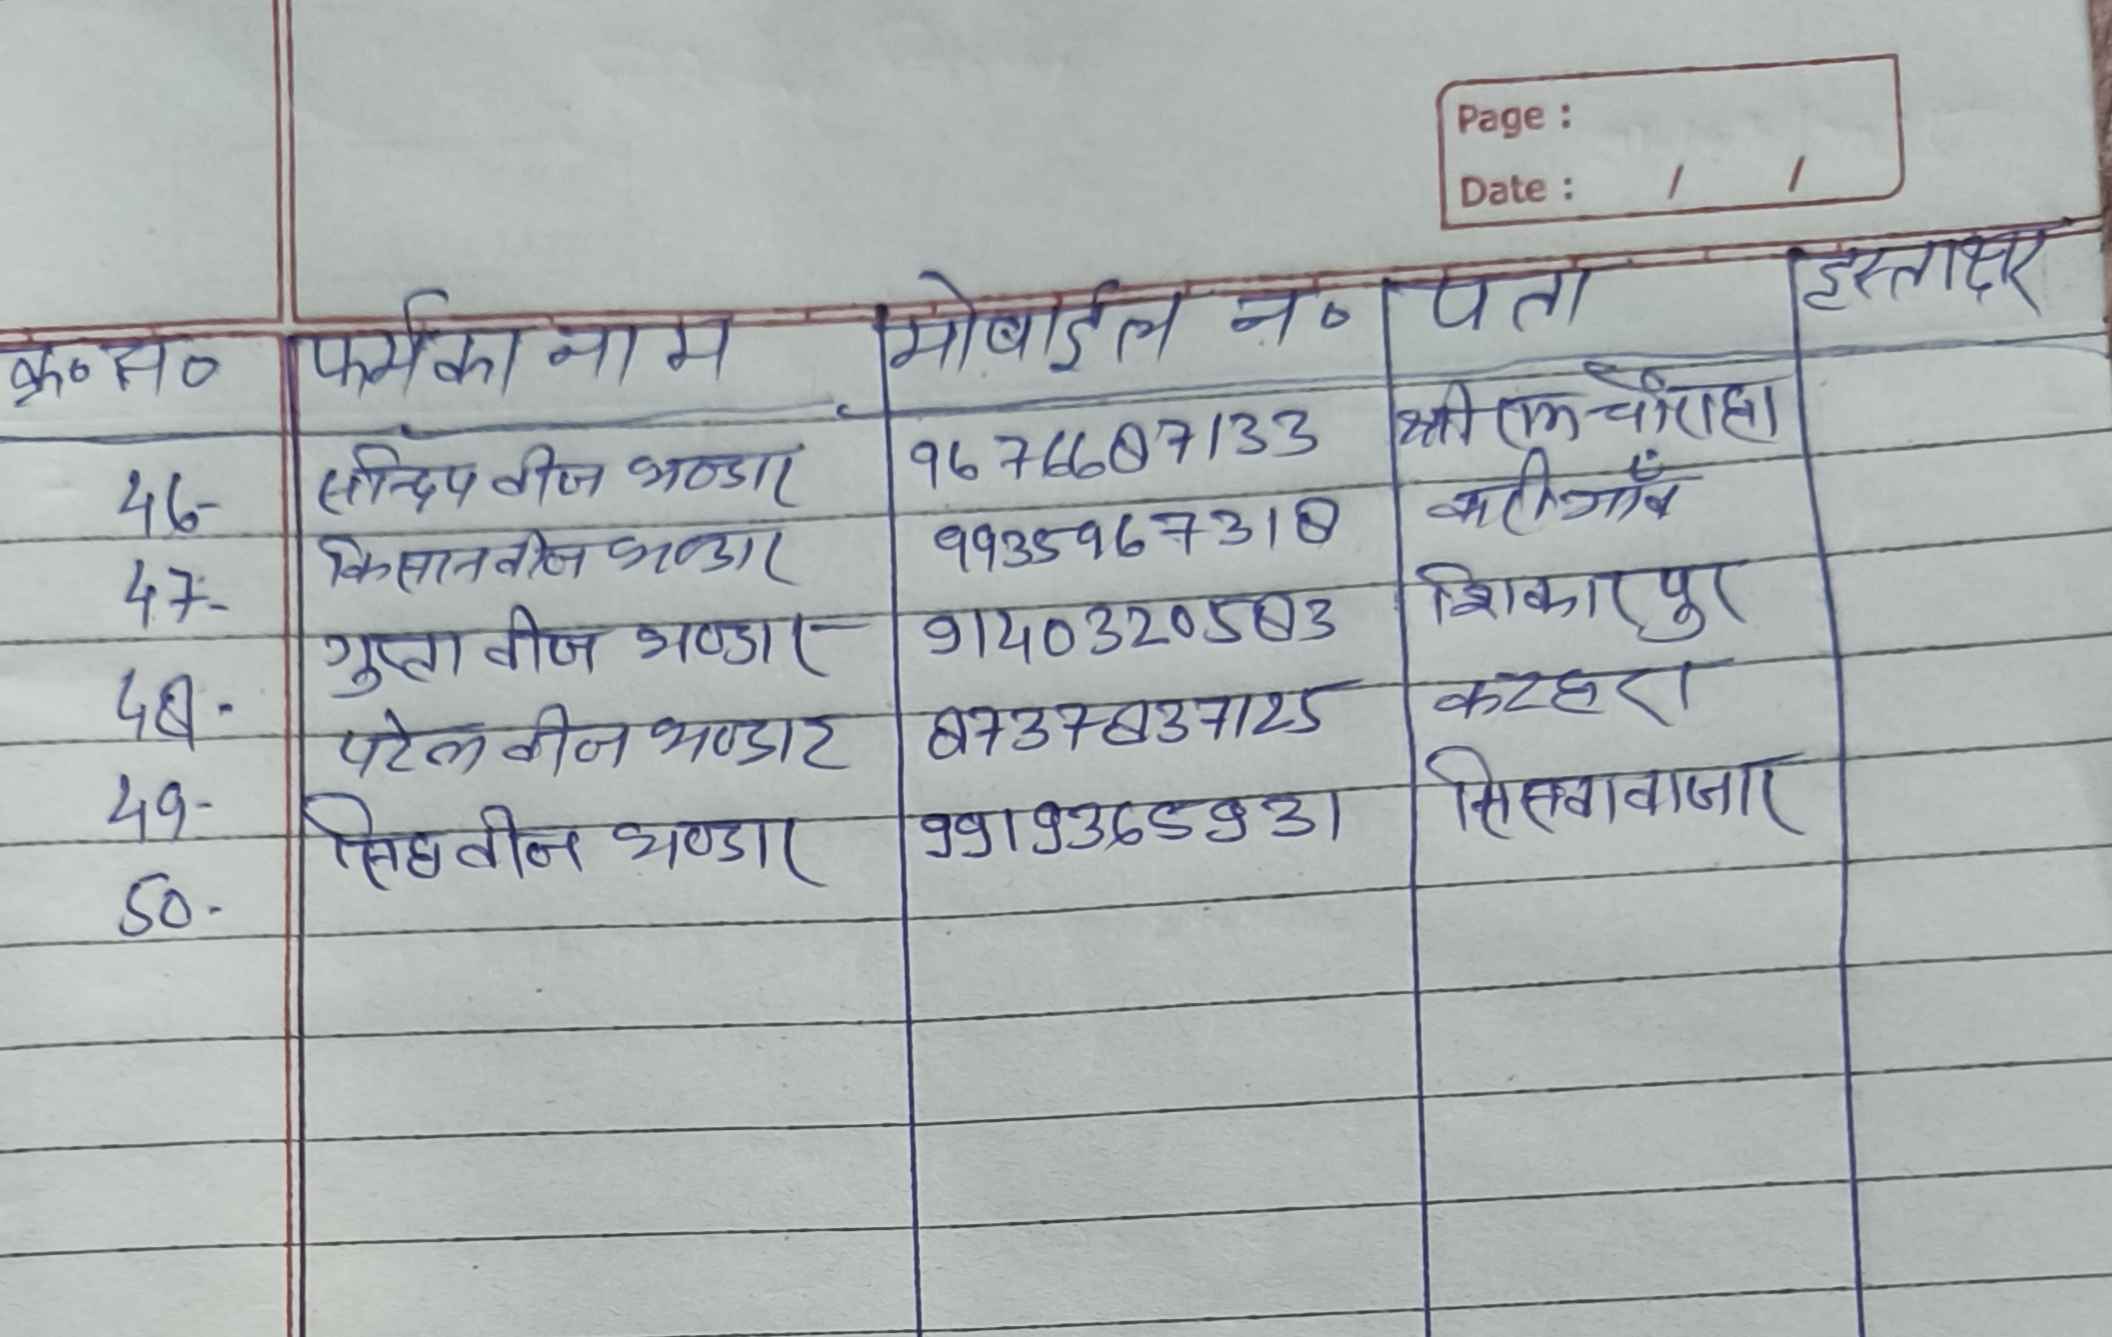 Page :
Date : / /
क्र० स० फर्म का नाम मोबाईल न० पता हस्ताक्षर
46- सन्दिप बीज भण्डार 9676687133 श्रीराम चौराहा
47- किसान बीज भण्डार 9935967318
48- गुप्ता बीज भण्डार 9140320583 शिकारपुर
49- पटेल बीज भण्डार 8737837125 कटहरा
50- सिंह बीज भण्डार 9919365931 सिसवा बाजार